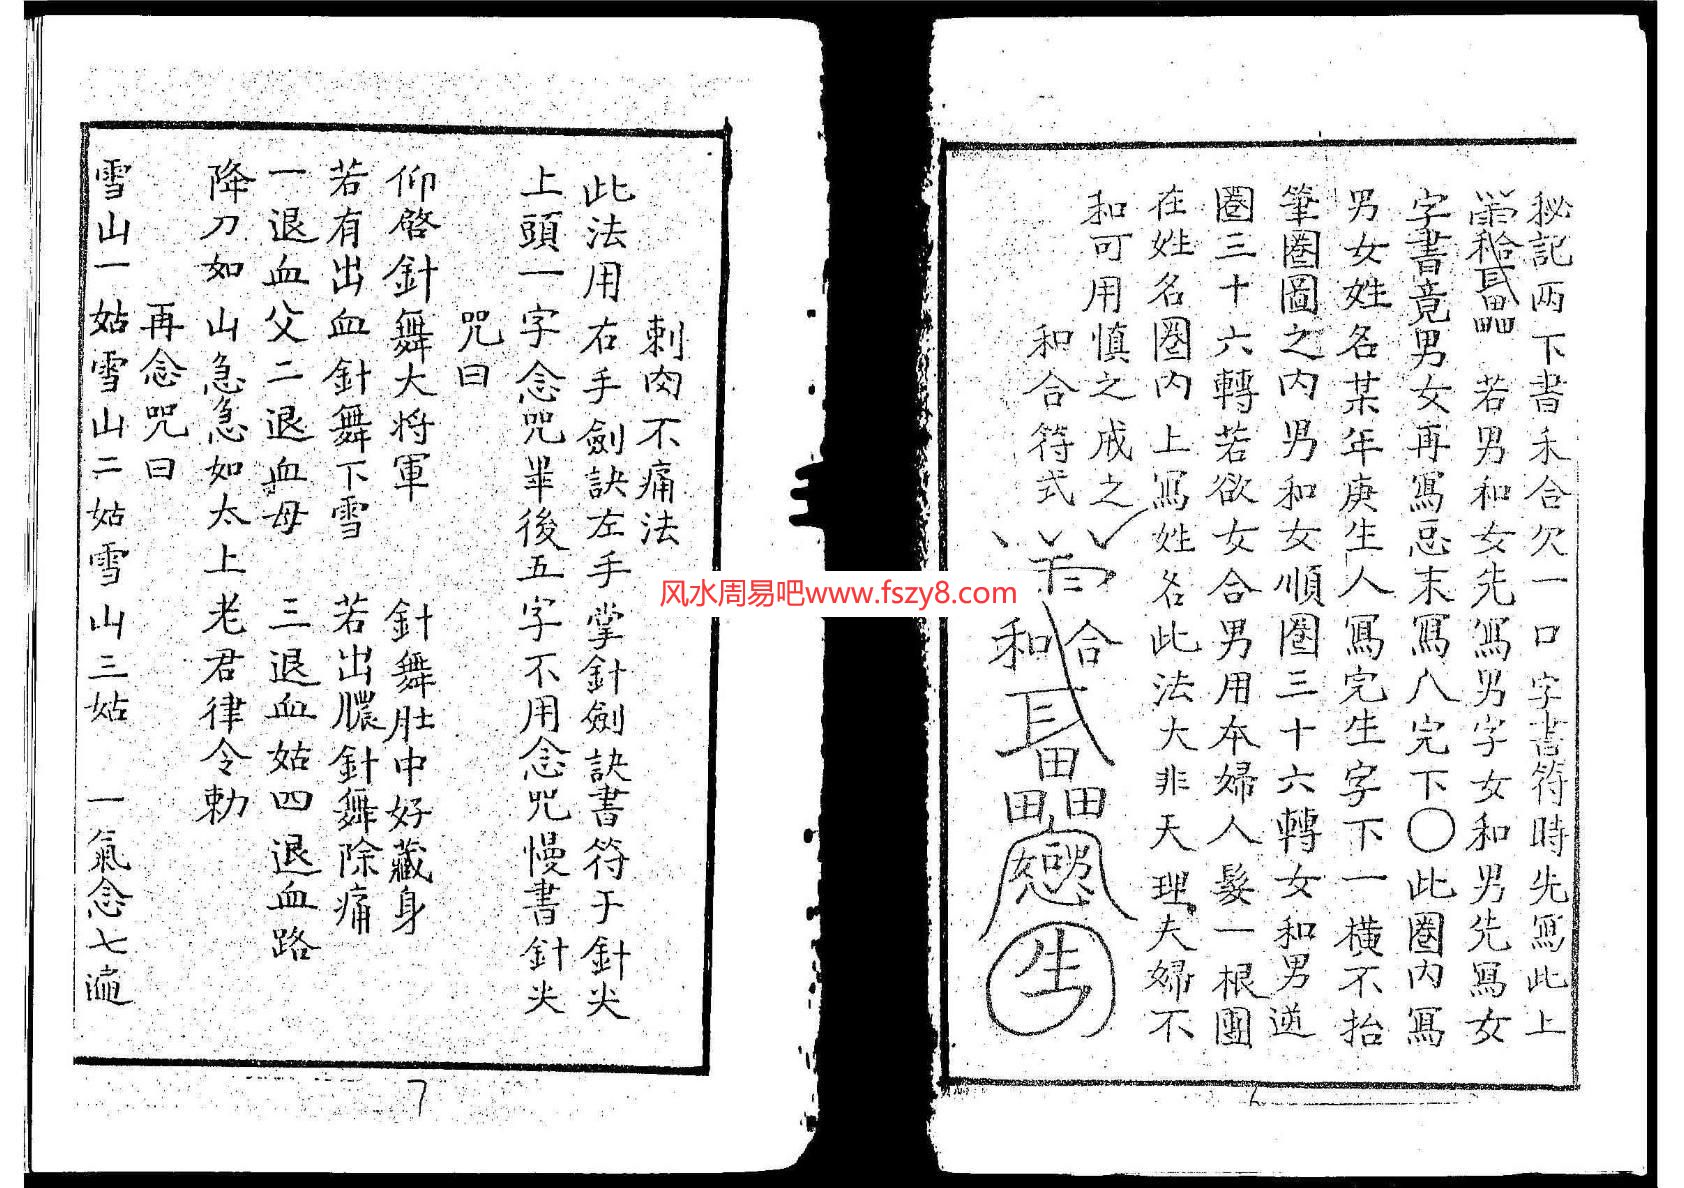 秘記两下書禾合欠一口字書符時先寫此上
若男和女先寫男字女和男先寫女
字書竟男女再寫忌末寫八完下〇此圈内寫
男女姓名某年庚生人寫完生字下一橫不抬
筆圈圖之内男和女順圈三十六轉女和男逆
圈三十六轉若欲女合男用本婦人髮一根圍
在姓名圈内上寫姓名此法大非天理夫婦不
和可用慎之戒之
和合符式
和合
田
田田
生
刺肉不痛法
此法用右手劍訣左手掌針劍訣書符于針尖
上頭一字念咒畢後五字不用念咒慢書針尖
咒曰
仰啓針舞大将軍 針舞肚中好藏身
若有出血針舞下雪 若出膿針舞除痛
一退血父二退血母 三退血姑四退血路
降刀如山急急如太上老君律令勅
再念咒曰
雪山一姑雪山二姑雪山三姑 一氣念七遍
风水周易吧www.fszy8.com
6
7